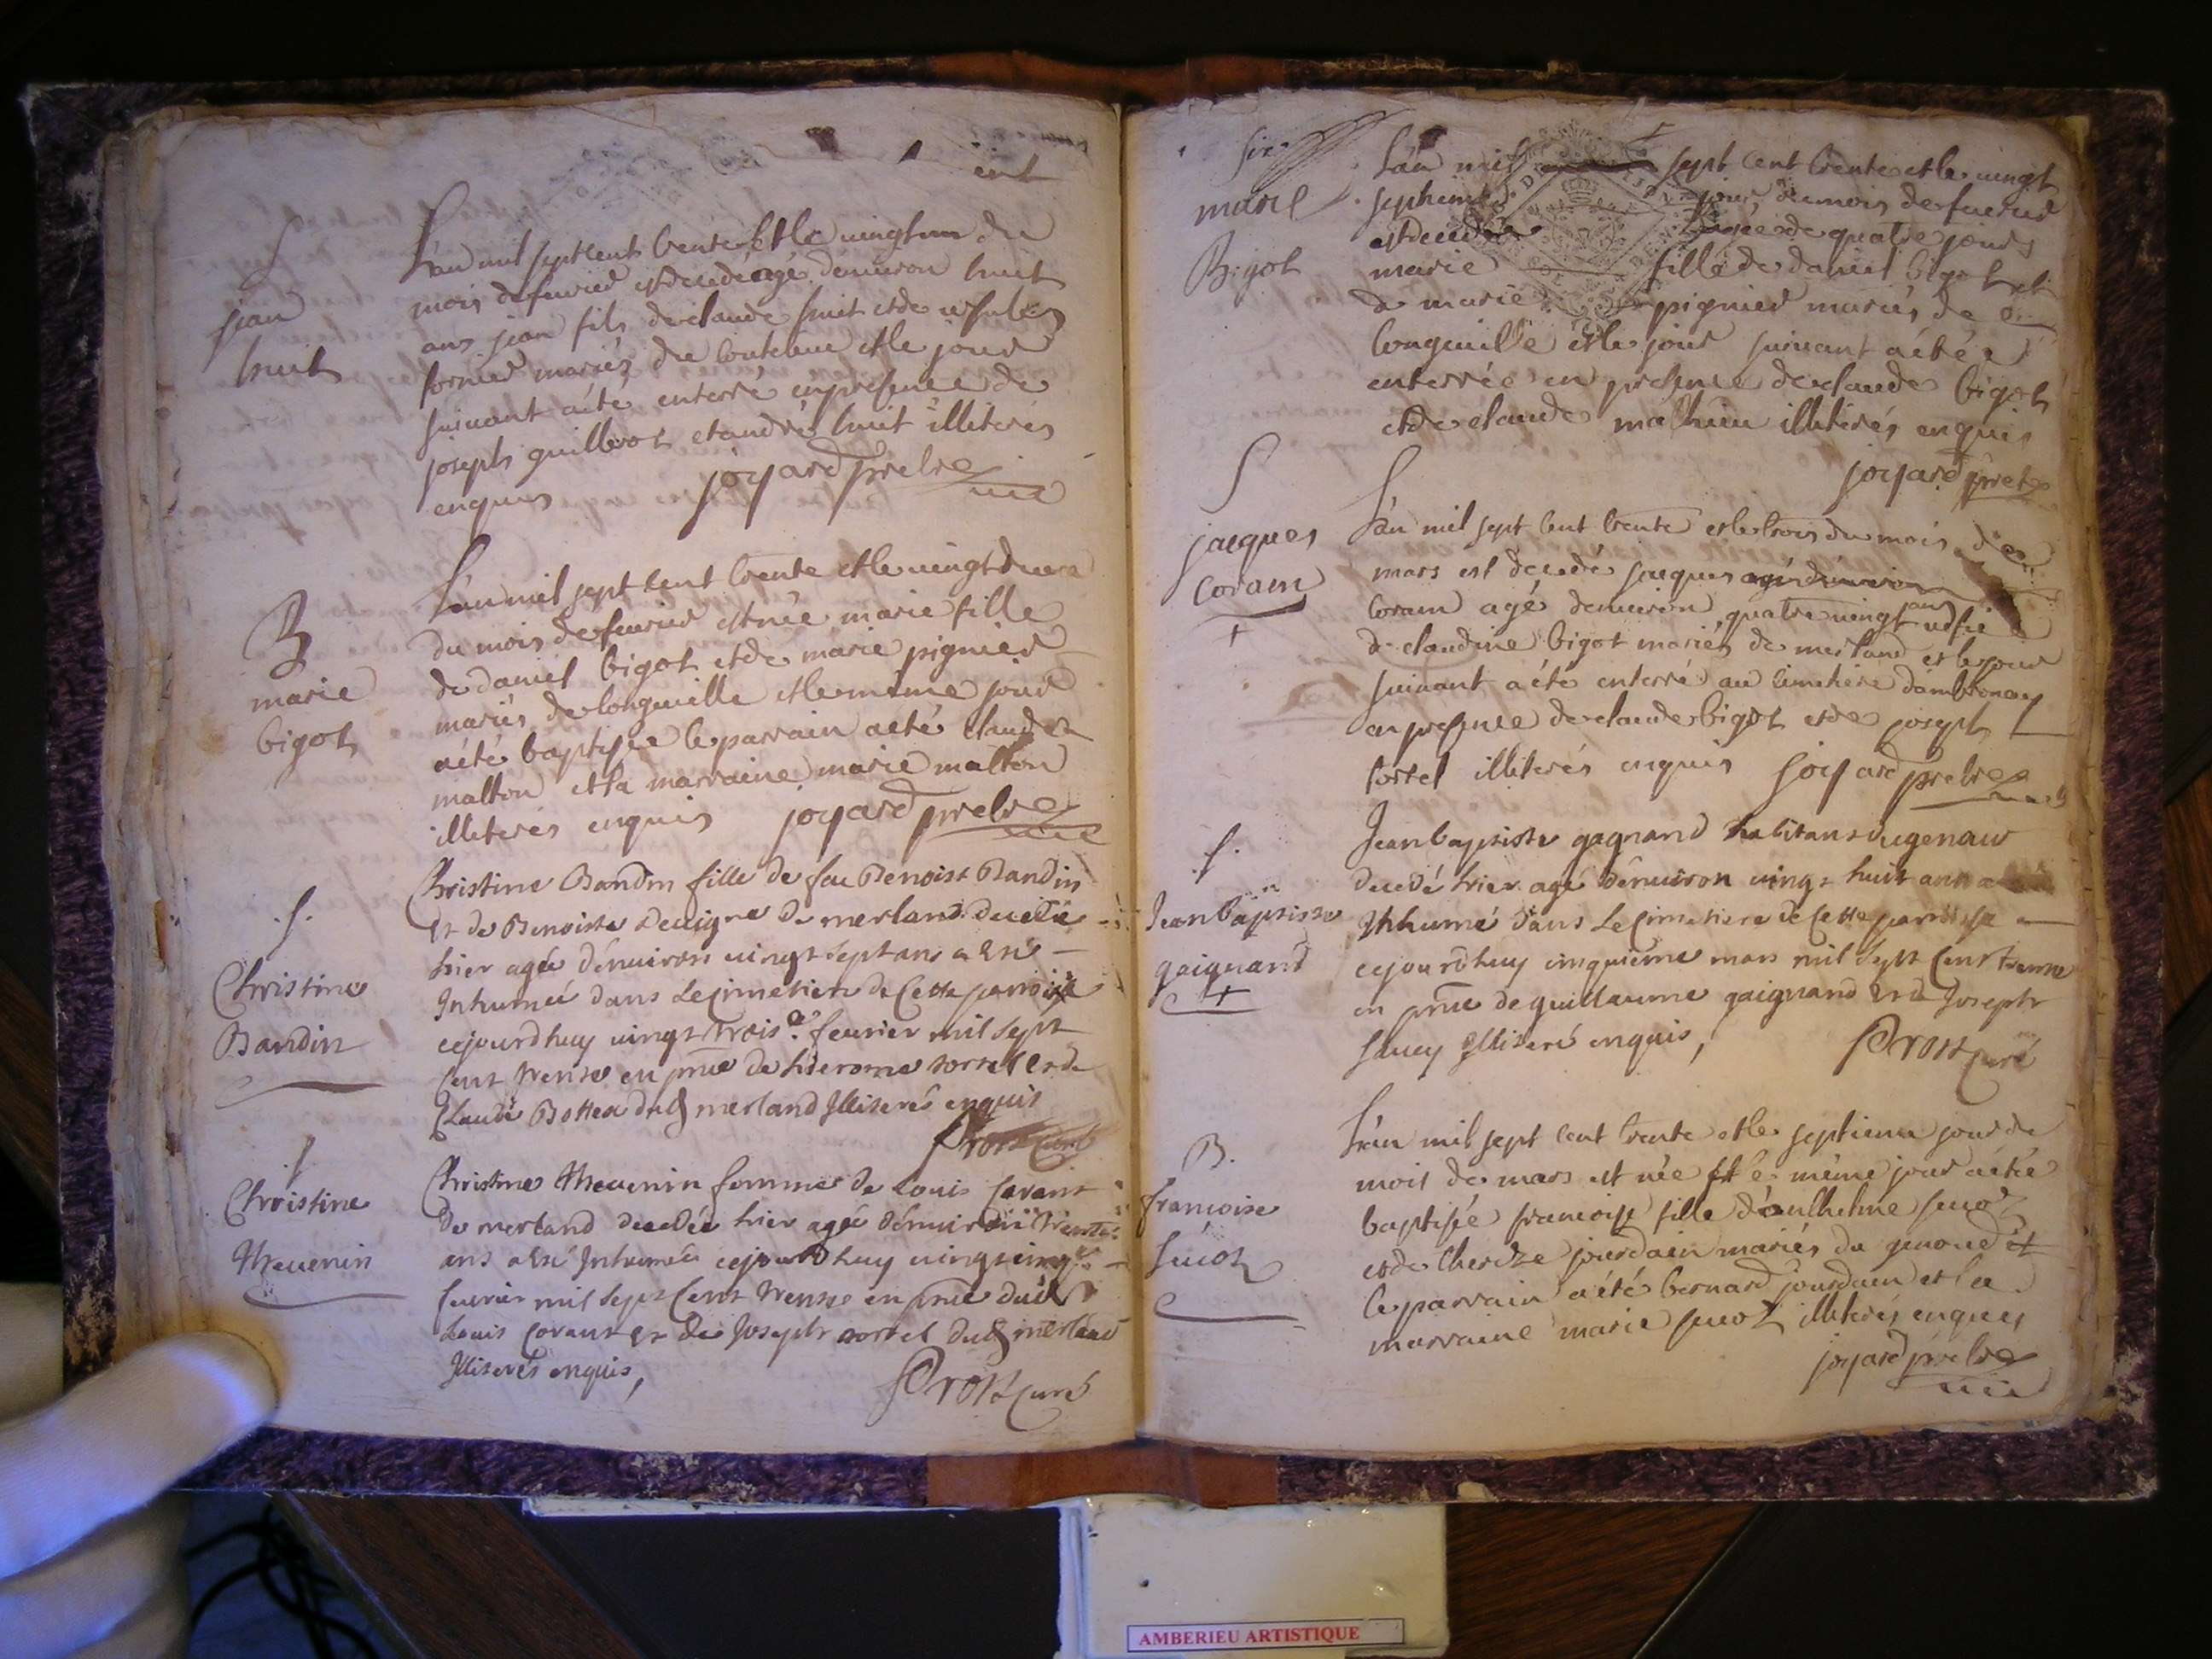 ent
S
jean
huit
L'an mil sept cent trente et le vingt un du
mois de fevrier est decedé agé d'environ huit
ans jean fils de claude huit et de
fornier mariés du et le jour
suivant a été enterré en presence de
joseph guillerot et andré huit illiterés
enquis joyard pretre
B
marie
bigot
L'an mil sept cent trente et le vingt deux
du mois de fevrier est née marie fille
de daniel bigot et de marie pignier
mariés de longeville et le même jour
a été baptisée le parrain a été claude
malton et la marraine marie malton
illiterés enquis joyard pretre
S.
Christine
Bandin
Christine Bandin fille de feu Benoist Bandin
et de Benoiste de merland decedée
hier agée d'environ vingt sept ans a esté
Inhumée dans le cimetiere de cette paroisse
cejourdhuy vingt trois.e fevrier mil sept
cent trente en pnce de hierome tortel et de
Claude Bottex dud merland Illiterés enquis
Prost curé
S
Christine
Thevenin
Christine Thevenin femme de Louis Corant
de merland decedée hier agée d'environ trente
ans a esté Inhumée cejourdhuy vingt cinq.e
fevrier mil sept cent trente en pnce dud
Louis Corant et de Joseph tortel dud merland
Illiterés enquis, Prost curé
six
marie
Bigot
L'an mil sept cent trente et le vingt
septieme jour du mois de fevrier
est decedée agée de quatre jours
marie fille de daniel bigot et
de marie pignier mariés de
longeville et le jour suivant a été
enterrée en presence de claude bigot
et de claude mathieu illiterés enquis
joyard pretre
S
jacques
Coram
+
L'an mil sept cent trente et le trois du mois de
mars est decedé jacques agé d'environ
Coram agé d'environ quatre vingt ans
de claudine bigot mariés de merland et le jour
suivant a été enterré au cimetiere d'ambronay
en presence de claude bigot et de joseph
tortel illiterés enquis joyard pretre
S.
Jean baptiste
gaignand
+
Jean baptiste gagnand habitant du genoux
decedé hier agé d'environ vingt huit ans a
Inhumé dans le cimetiere de cette paroisse
cejourdhuy cinquieme mars mil sept cent trente
en pnce de guillaume gaignand et de Joseph
Illiteré enquis, Prost curé
B.
francoise
L'an mil sept cent trente et le septieme jour du
mois de mars est née et le même jour a été
baptisée francoise fille d'anthelme
et de jourdain mariés du genoud et
le parrain a été bernard jourdain et la
marraine marie illiterés enquis
joyard pretre
AMBERIEU ARTISTIQUE